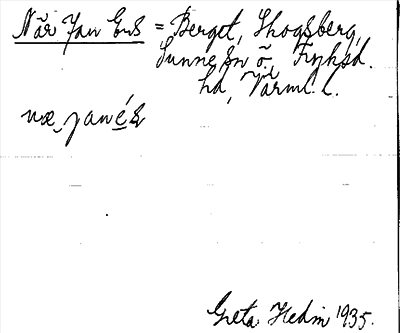 När Jan Ers = Berget, Skogsberg,
Sunne sn ö., Fryksd.
hd, Värml. l.
Greta Hedin 1935.